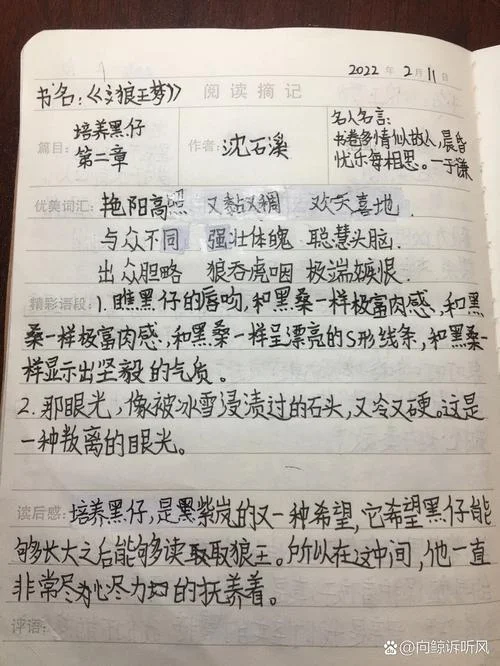 2022 年 2 月 11 日
书名:《狼王梦》 阅读摘记
篇目: 培养黑仔 第二章
作者: 沈石溪
名人名言:
书卷多情似故人,晨昏
忧乐每相思。—于谦
优美词汇: 艳阳高照 又黏又稠 欢天喜地.
与众不同 强壮体魄 聪慧头脑.
出众胆略 狼吞虎咽 极端嫉恨.
精彩语段: 1. 瞧黑仔的唇吻,和黑桑一样极富肉感,和黑
桑一样极富肉感,和黑桑一样呈漂亮的S形线条,和黑桑一
样显示出坚毅的气质。
2. 那眼光,像被冰雪浸渍过的石头,又冷又硬。这是
一种叛离的眼光。
读后感: 培养黑仔,是黑紫岚的又一种希望,它希望黑仔能
够长大之后能够读取取狼王。所以在这中间,他一直
非常尽心尽力的抚养着。
评语:
@向鲸诉听风